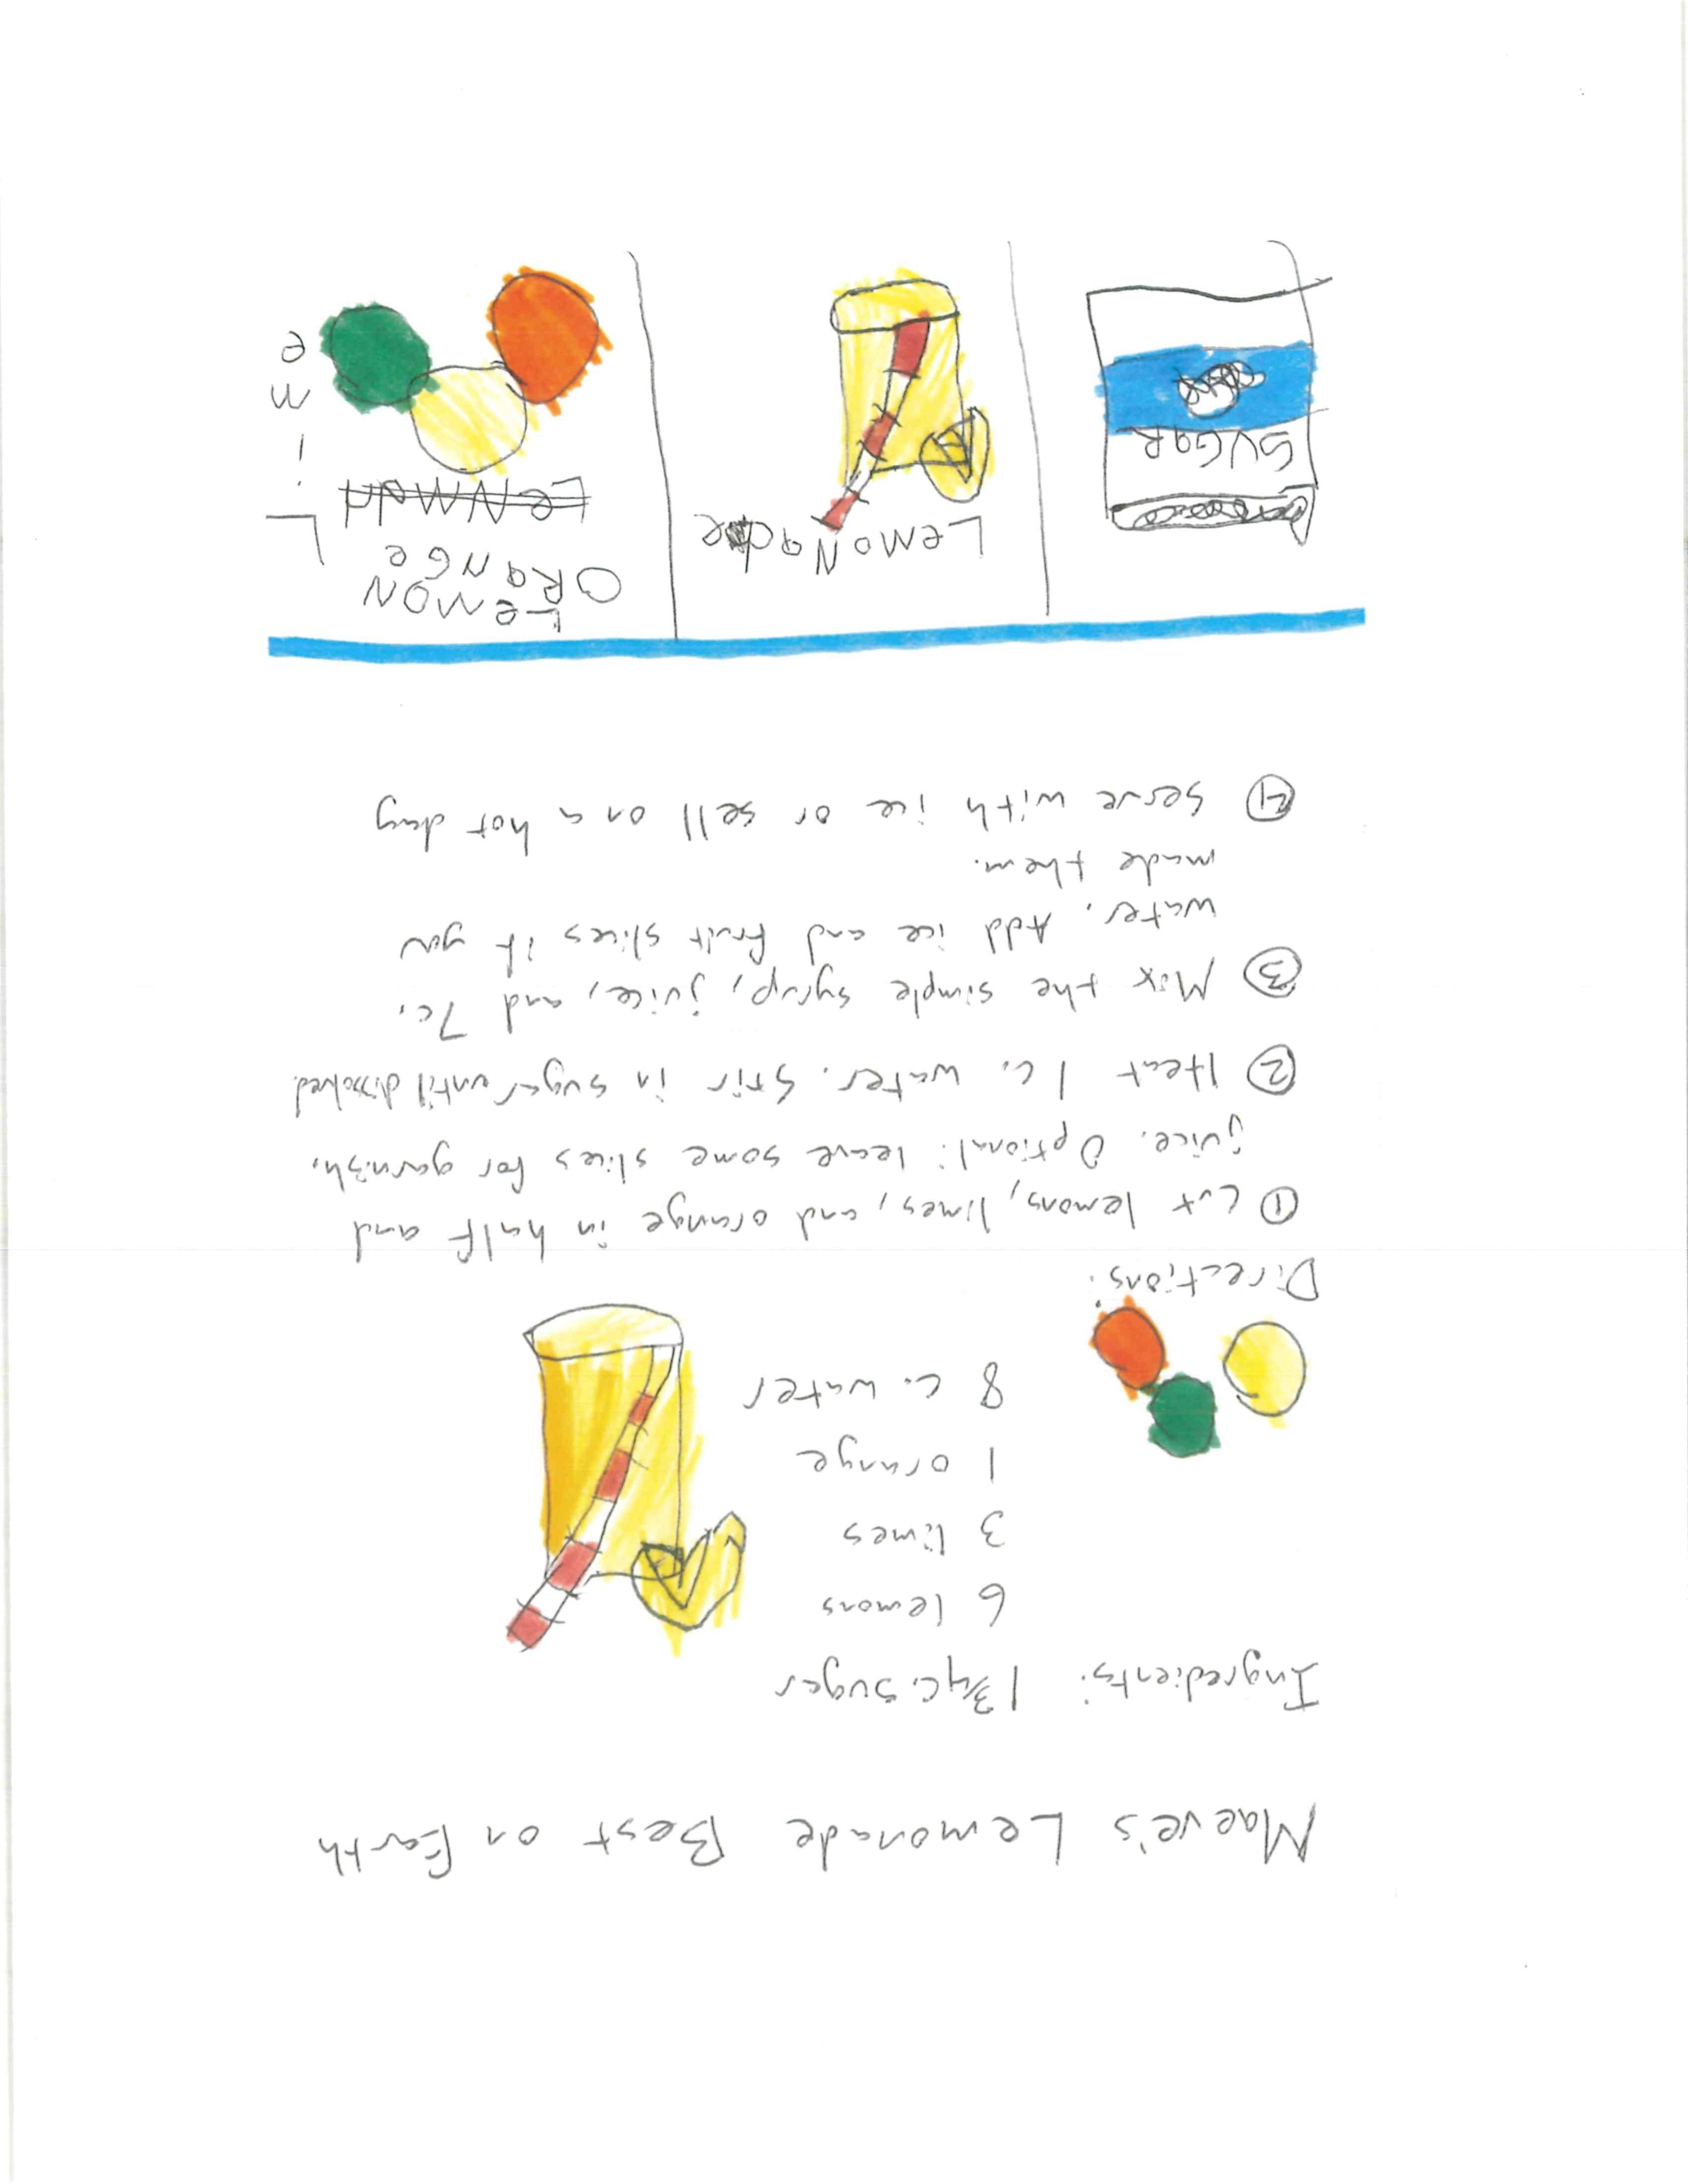 Maeve's Lemonade Best on Earth
Ingredients: 1 3/4 c. suger
6 lemons
3 limes
1 orange
8 c. water
Directions:
① Cut lemons, limes, and orange in half and
juice. Optional: leave some slices for garnish.
② Heat 1 c. water. Stir in suger until dissolved.
③ Mix the simple syrup, juice, and 7c.
water. Add ice and fruit slices if you
made them.
④ Serve with ice or sell on a hot day
SUGAR
LeMONade
LeMON
ORaNGe
Lime